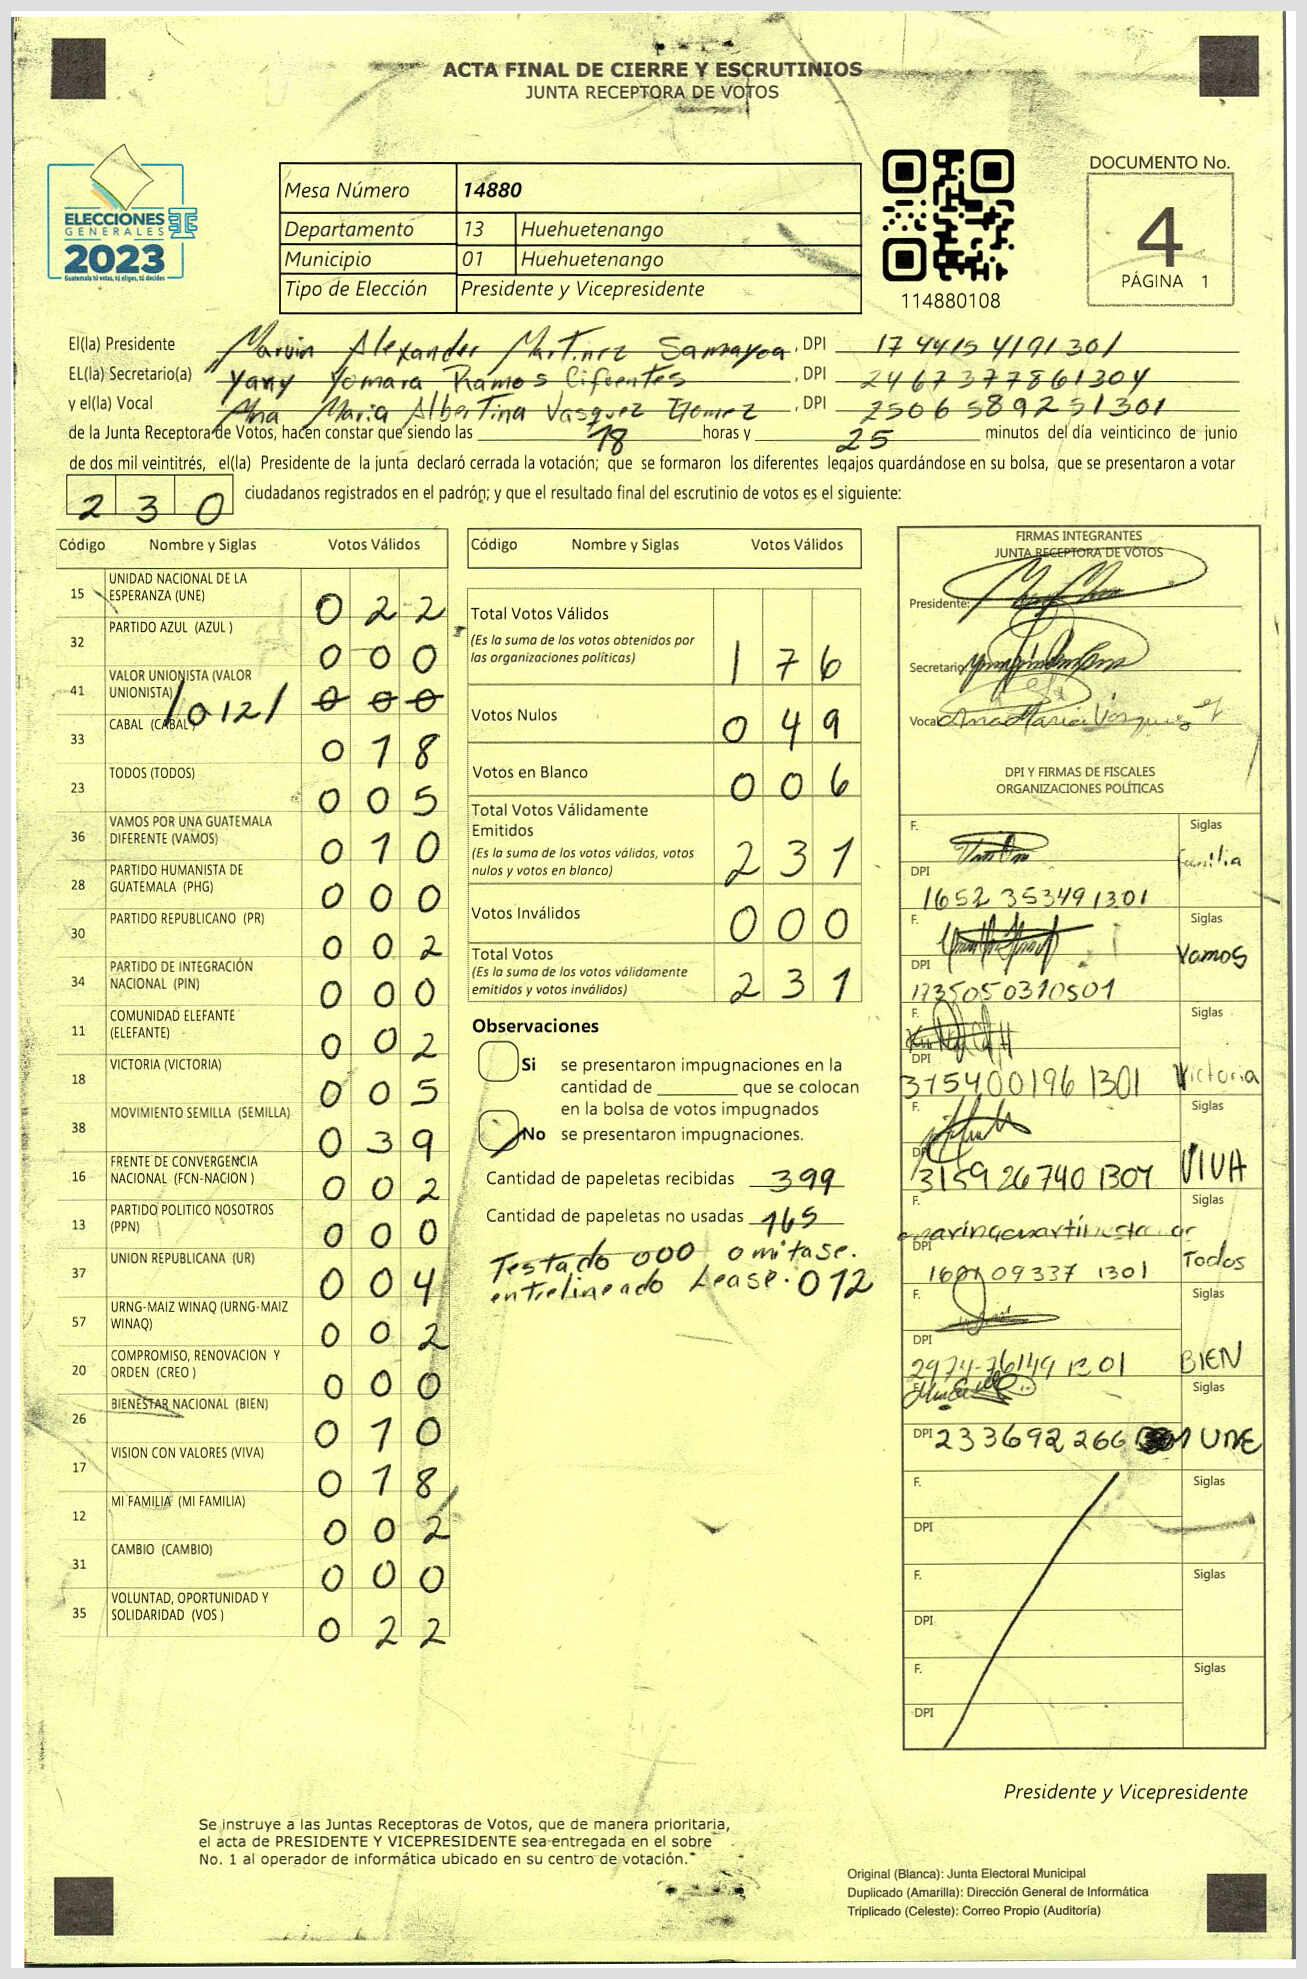 ACTA FINAL DE CIERRE Y ESCRUTINIOS
JUNTA RECEPTORA DE VOTOS
ELECCIONES
GENERALES
2023
Guatemala tú votas, tú eliges, tú decides
Mesa Número 14880
Departamento 13 Huehuetenango
Municipio 01 Huehuetenango
Tipo de Elección Presidente y Vicepresidente
114880108
DOCUMENTO No.
4
PÁGINA 1
El(la) Presidente Marvin Alexander Martinez Samayoa, DPI 17 44154191301
EL(la) Secretario(a) Yany Yomara Ramos Cifuentes, DPI 2467377861304
y el(la) Vocal Ana Maria Albertina Vasquez Gomez, DPI 2506589251301
de la Junta Receptora de Votos, hacen constar que siendo las 18 horas y 25 minutos del día veinticinco de junio
de dos mil veintitrés, el(la) Presidente de la junta declaró cerrada la votación; que se formaron los diferentes legajos guardándose en su bolsa, que se presentaron a votar
2 3 0 ciudadanos registrados en el padrón; y que el resultado final del escrutinio de votos es el siguiente:
Código Nombre y Siglas Votos Válidos
15 UNIDAD NACIONAL DE LA ESPERANZA (UNE) 0 2 2
32 PARTIDO AZUL (AZUL ) 0 0 0
41 VALOR UNIONISTA (VALOR UNIONISTA) /012/ 0 0 0
33 CABAL (CABAL ) 0 1 8
23 TODOS (TODOS) 0 0 5
36 VAMOS POR UNA GUATEMALA DIFERENTE (VAMOS) 0 1 0
28 PARTIDO HUMANISTA DE GUATEMALA (PHG) 0 0 0
30 PARTIDO REPUBLICANO (PR) 0 0 2
34 PARTIDO DE INTEGRACIÓN NACIONAL (PIN) 0 0 0
11 COMUNIDAD ELEFANTE (ELEFANTE) 0 0 2
18 VICTORIA (VICTORIA) 0 0 5
38 MOVIMIENTO SEMILLA (SEMILLA) 0 3 9
16 FRENTE DE CONVERGENCIA NACIONAL (FCN-NACION ) 0 0 2
13 PARTIDO POLITICO NOSOTROS (PPN) 0 0 0
37 UNION REPUBLICANA (UR) 0 0 4
57 URNG-MAIZ WINAQ (URNG-MAIZ WINAQ) 0 0 2
20 COMPROMISO, RENOVACION Y ORDEN (CREO ) 0 0 0
26 BIENESTAR NACIONAL (BIEN) 0 1 0
17 VISION CON VALORES (VIVA) 0 1 8
12 MI FAMILIA (MI FAMILIA) 0 0 2
31 CAMBIO (CAMBIO) 0 0 0
35 VOLUNTAD, OPORTUNIDAD Y SOLIDARIDAD (VOS ) 0 2 2
Código Nombre y Siglas Votos Válidos
Total Votos Válidos 1 7 6
(Es la suma de los votos obtenidos por
las organizaciones políticas)
Votos Nulos 0 4 9
Votos en Blanco 0 0 6
Total Votos Válidamente
Emitidos 2 3 1
(Es la suma de los votos válidos, votos
nulos y votos en blanco)
Votos Inválidos 0 0 0
Total Votos 2 3 1
(Es la suma de los votos válidamente
emitidos y votos inválidos)
Observaciones
Si se presentaron impugnaciones en la
cantidad de ________ que se colocan
en la bolsa de votos impugnados
No se presentaron impugnaciones.
Cantidad de papeletas recibidas 399
Cantidad de papeletas no usadas 165
Testado 000 omitase.
entrelineado Lease. 012
FIRMAS INTEGRANTES
JUNTA RECEPTORA DE VOTOS
Presidente:
Secretario:
Vocal: Ana Maria Vásquez
DPI Y FIRMAS DE FISCALES
ORGANIZACIONES POLÍTICAS
F. Siglas
familia
DPI 1652 35349 1301
F. Siglas
Vamos
DPI 1735050310501
F. Siglas
DPI 315400196 1301 Victoria
F. Siglas
DPI 3159 26740 1307 VIVA
F. Siglas
DPI 09337 1301 Todos
F. Siglas
DPI 2974-76149 1301 BIEN
Siglas
DPI 233692266 UNE
F. Siglas
DPI
F. Siglas
DPI
F. Siglas
DPI
Presidente y Vicepresidente
Se instruye a las Juntas Receptoras de Votos, que de manera prioritaria,
el acta de PRESIDENTE Y VICEPRESIDENTE sea entregada en el sobre
No. 1 al operador de informática ubicado en su centro de votación.
Original (Blanca): Junta Electoral Municipal
Duplicado (Amarilla): Dirección General de Informática
Triplicado (Celeste): Correo Propio (Auditoría)